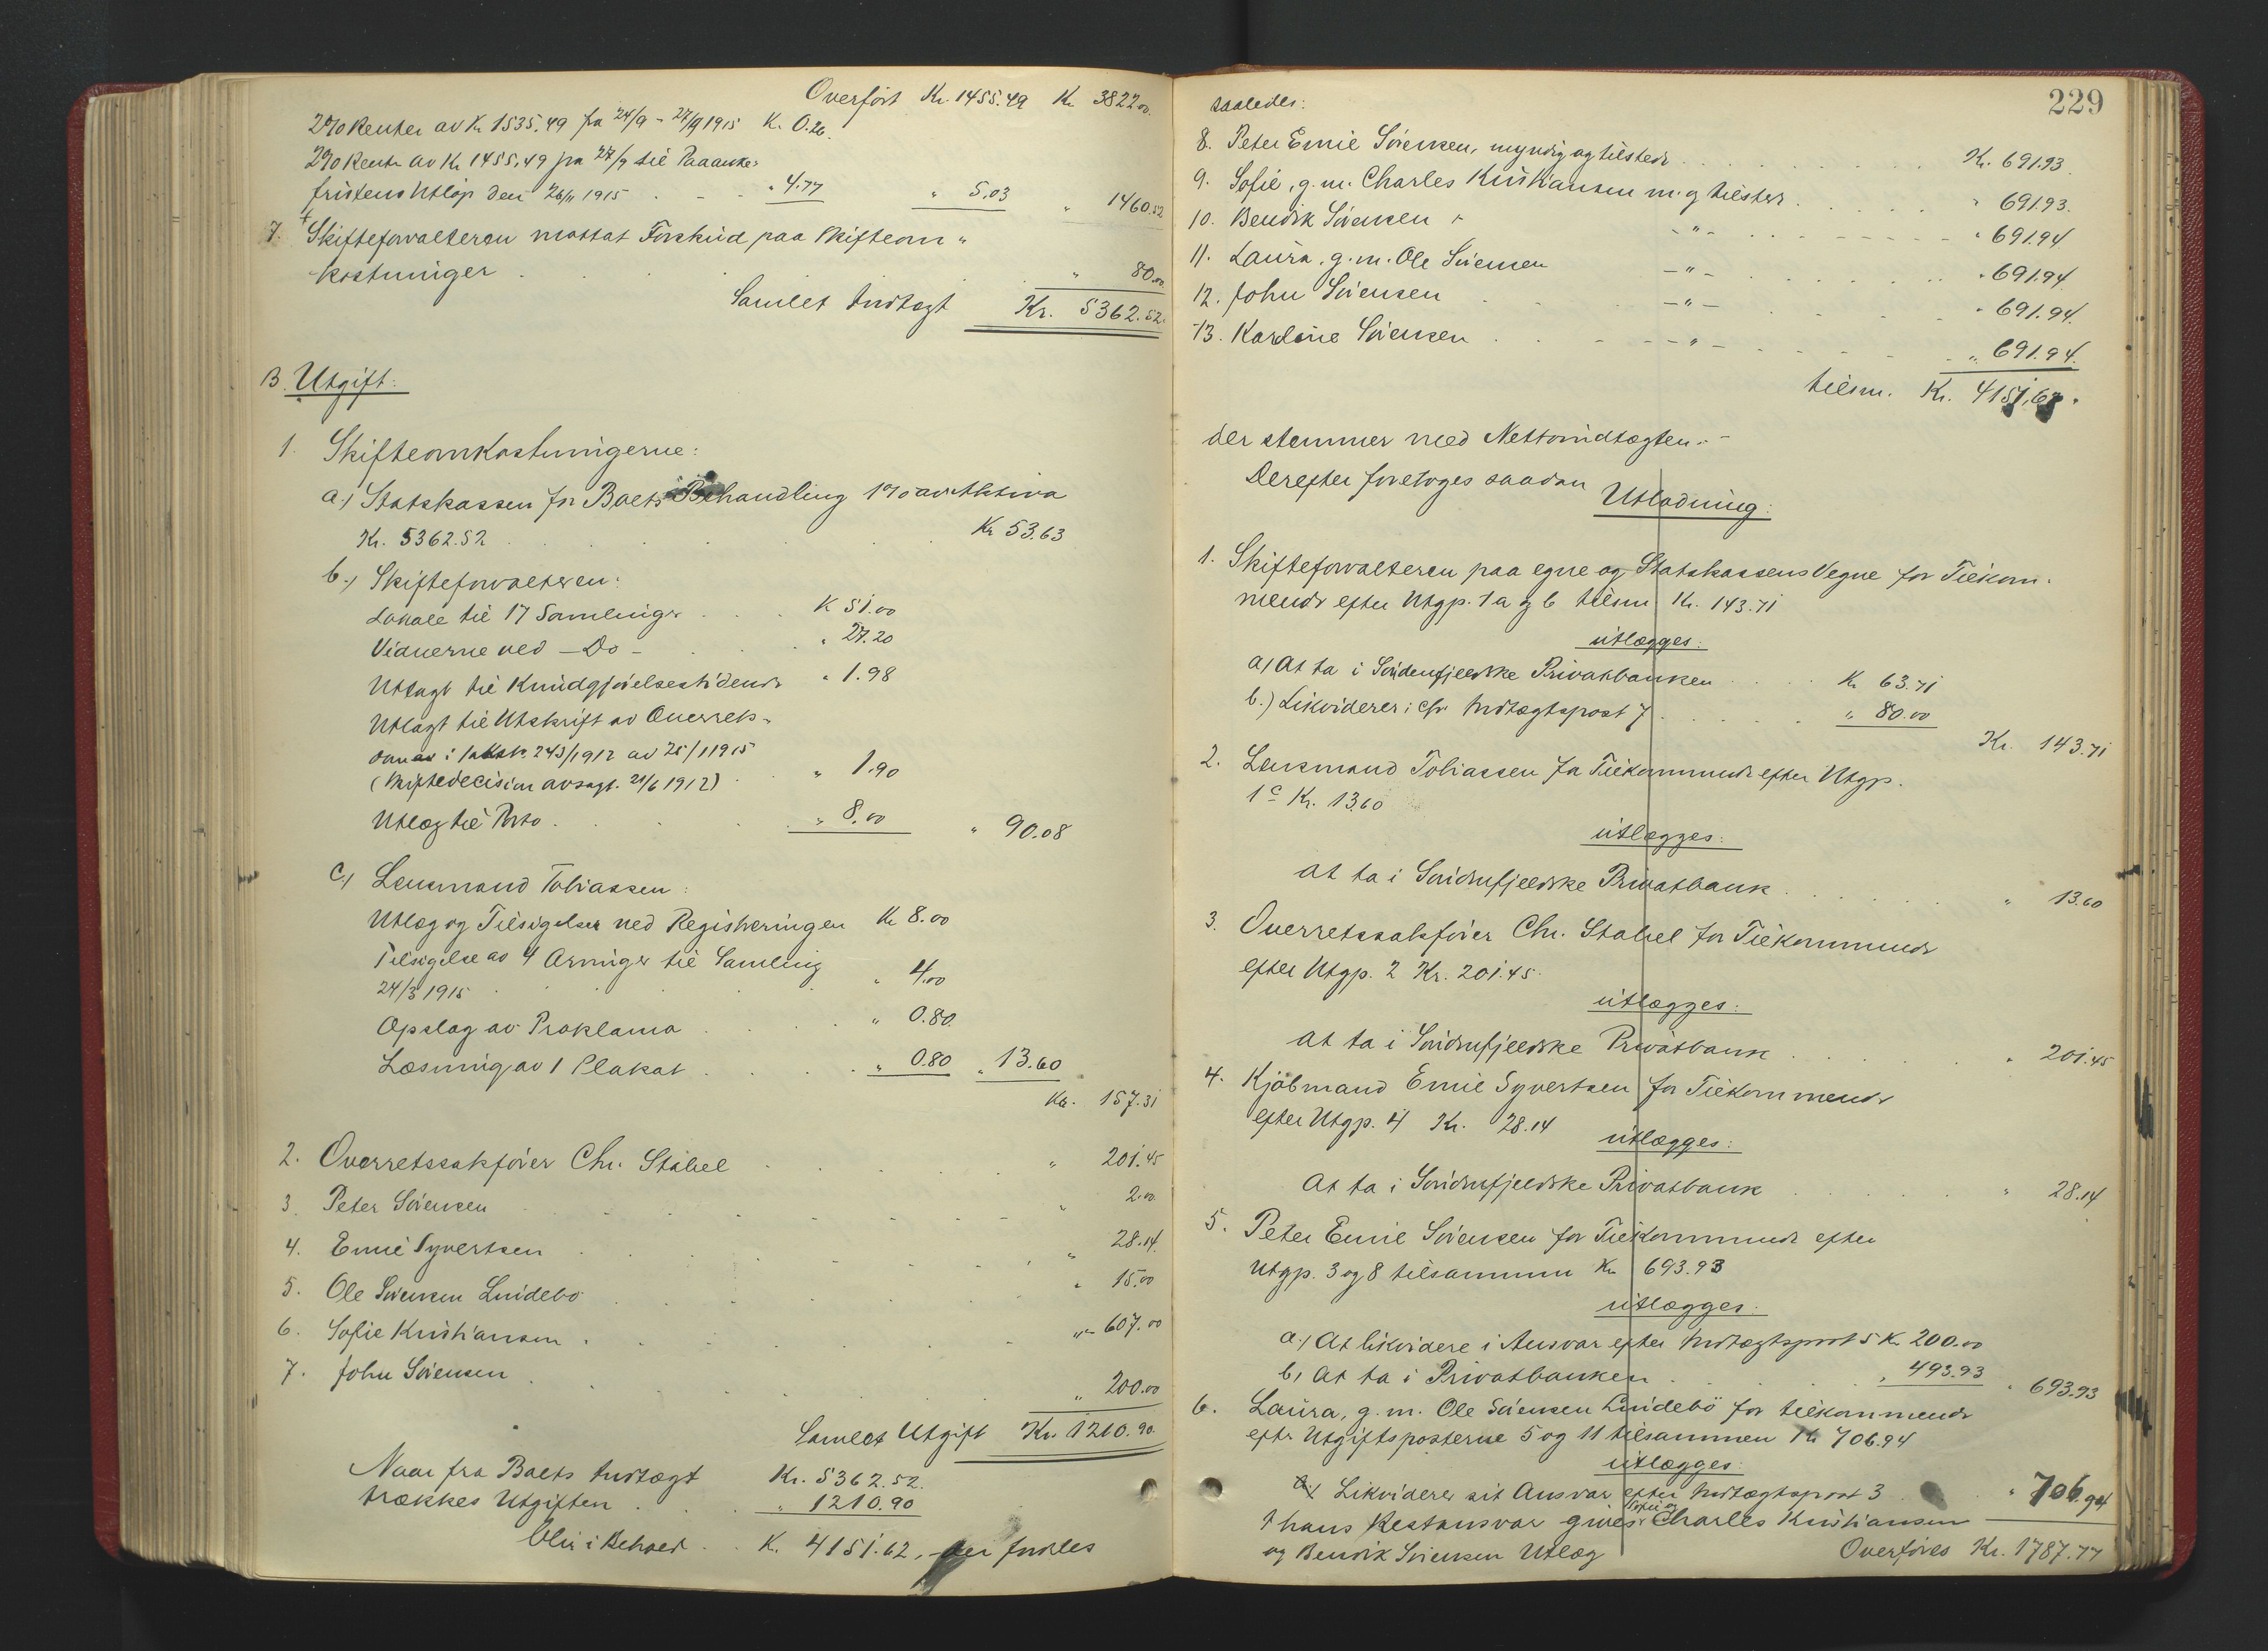 Overført Kr. 1455.49 Kr. 3822.00.
2% Renter av Kr 1535.49 fra 24/9 - 27/9 1915 K. 0.26.
2% Rente av Kr 1455.49 fra 27/9 til Paaanke-
fristens Utløp den 26/11 1915 . - - " 4.77 " 5,03 " 1460.52
7. Skifteforvalteren mottat Forskud paa Skifteom "
kostninger . . . . . . " 80.00
Samlet Indtægt Kr. 5362.52.
B. Utgift:
1. Skifteomkostningerne:
a.) Statskassen for Boets Behandling 1% av Aktiva
Kr. 5362.52 . . . . . . Kr 53.63
b.) Skifteforvalteren:
Lokale til 17 Samlinger . . . K 51.00
Vidnerne ved - Do - . . . " 27.20
Utlagt til Kundgjørelsestidende " 1.98
Utlagt til Utskrift av Overrets-
243/1912 av 25/1 1915
(Skiftedecision avsagt 21/6 1912) . " 1.90
Utlæg til Porto . . . . " 8.00 " 90.08
c.) Lensmand Tobiassen:
Utlæg og Tilsigelser ved Registreringen Kr 8.00
Tilsigelse av 4 Arvinger til Samling
24/3 1915 . . . . " 4.00
Opslag av Proklama . . . " 0.80.
Læsning av 1 Plakat . . . " 0.80 " 13.60
Kr. 157.31
2. Overretssakfører Chr. Stabel . . . . " 201.45
3. Peter Sørensen . . . . . . " 2.00
4. Emil Syvertsen . . . . . . " 28.14.
5. Ole Sørensen Lindebø . . . . . " 15.00
6. Sofie Kristiansen . . . . . " 607.00
7. John Sørensen . . . . . . " 200.00
Samlet Utgift Kr. 1210.90.
Naar fra Boets Indtægt Kr. 5362.52.
trækkes Utgiften . . . " 1210.90
blir i Behold . . K. 4151.62, - der fordeles
229
saaledes:
8. Peter Emil Sørensen, myndig og tilstede . . . . Kr. 691.93.
9. Sofie, g.m. Charles Kristiansen m. og tilstede . . . " 691.93.
10. Bendik Sørensen - " - . . . . . " 691.94
11. Laura, g.m. Ole Sørensen - " - . . . . " 691.94
12. John Sørensen . . . - " - . . . " 691.94.
13. Karoline Sørensen . . . - " - . . . " 691.94.
tilsm. Kr. 4151,62.
der stemmer med Nettoindtægten. -
Derefter foretoges saadan
Utlodning:
1. Skifteforvalteren paa egne og Statskassens Vegne for Tilkom-
mende efter Utgp. 1 a og b tilsm. Kr. 143.71
utlægges:
a) At ta i Søndenfjeldske Privatbanken . . . Kr 63.71
b.) Likviderer: cfr. Indtægtspost 7 . . . . " 80.00
Kr. 143.71
2. Lensmand Tobiassen for Tilkommende efter Utgp.
1c Kr. 13.60
utlægges:
At ta i Søndenfjeldske Privatbank . . . . . " 13.60
3. Overretssakfører Chr. Stabel for Tilkommende
efter Utgp. 2 Kr. 201.45.
utlægges:
At ta i Søndenfjeldske Privatbank . . . . " 201.45
4. Kjøbmand Emil Syvertsen for Tilkommende
efter Utgp. 4 Kr. 28.14
utlægges:
At ta i Søndenfjeldske Privatbank . . . . " 28.14
5. Peter Emil Sørensen for Tilkommende efter
Utgp. 3 og 8 tilsammen Kr 693.93
utlægges:
a.) At likvidere i Ansvar efter Indtægtspost 5 K. 200.00
b) At ta i Privatbanken . . . . . " 493.93 " 693.93
6. Laura, g.m. Ole Sørensen Lindebø for tilkommende
efter Utgiftsposterne 5 og 11 tilsammen Kr 706.94
utlægges:
Likviderer sit Ansvar efter Indtægtspost 3 . . " 706.94
I hans Restansvar gives Sofie og Charles Kristiansen
og Bendik Sørensen Utlæg Overføres Kr. 1787.77